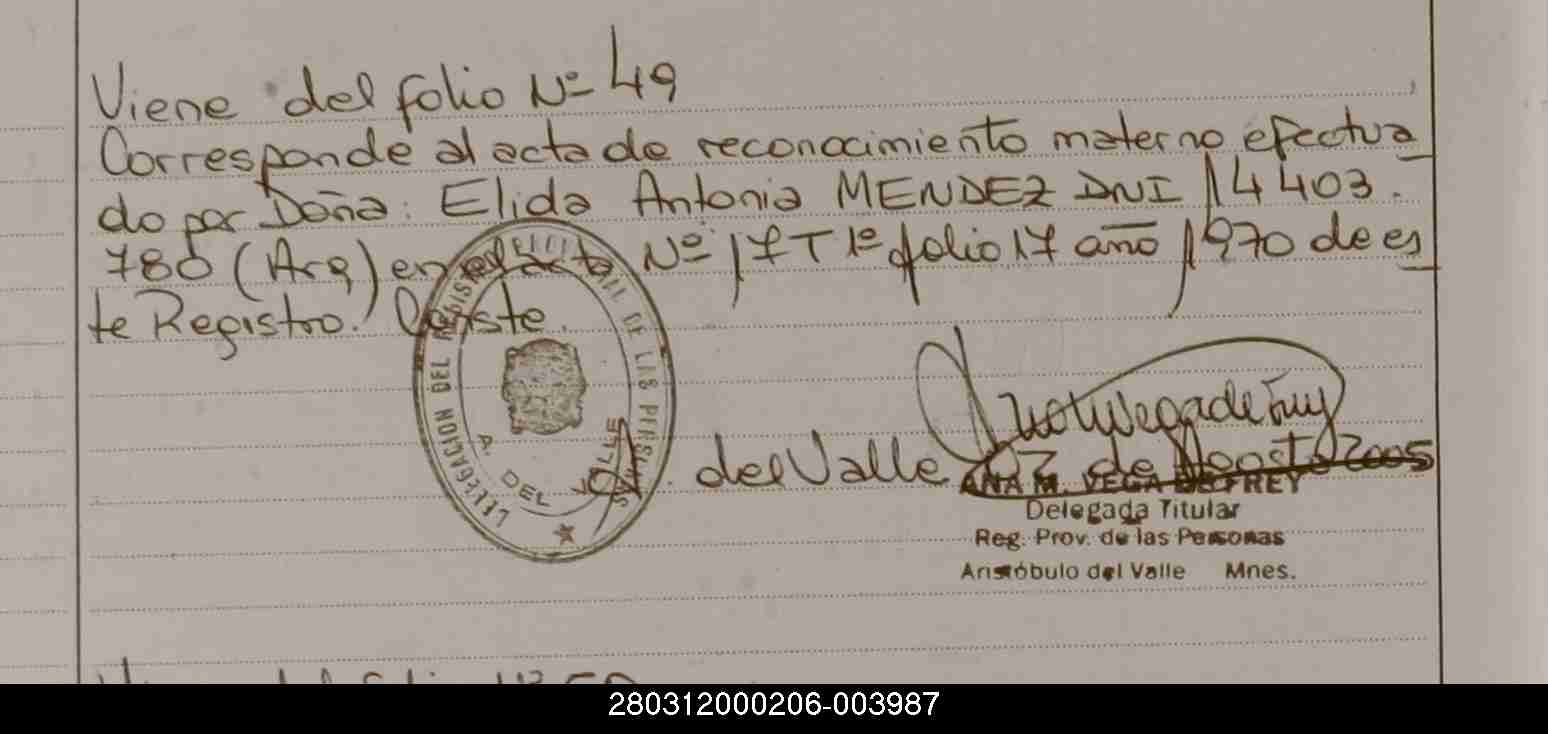 Viene del folio Nº 49
Corresponde al acta de reconocimiento materno efectua
do por Doña: Elida Antonia MENDEZ DNI 14 403.
780 (Arg) en el acta Nº 17 Tº 1º folio 17 año 1970 de es
te Registro. Conste.
A. del Valle 02 de Agosto 2005
ANA M. VEGA DE FREY
Delegada Titular
Reg. Prov. de las Personas
Aristóbulo del Valle Mnes.
DELEGACION DEL REGISTRO DE LAS PERSONAS
A. DEL VALLE
280312000206-003987